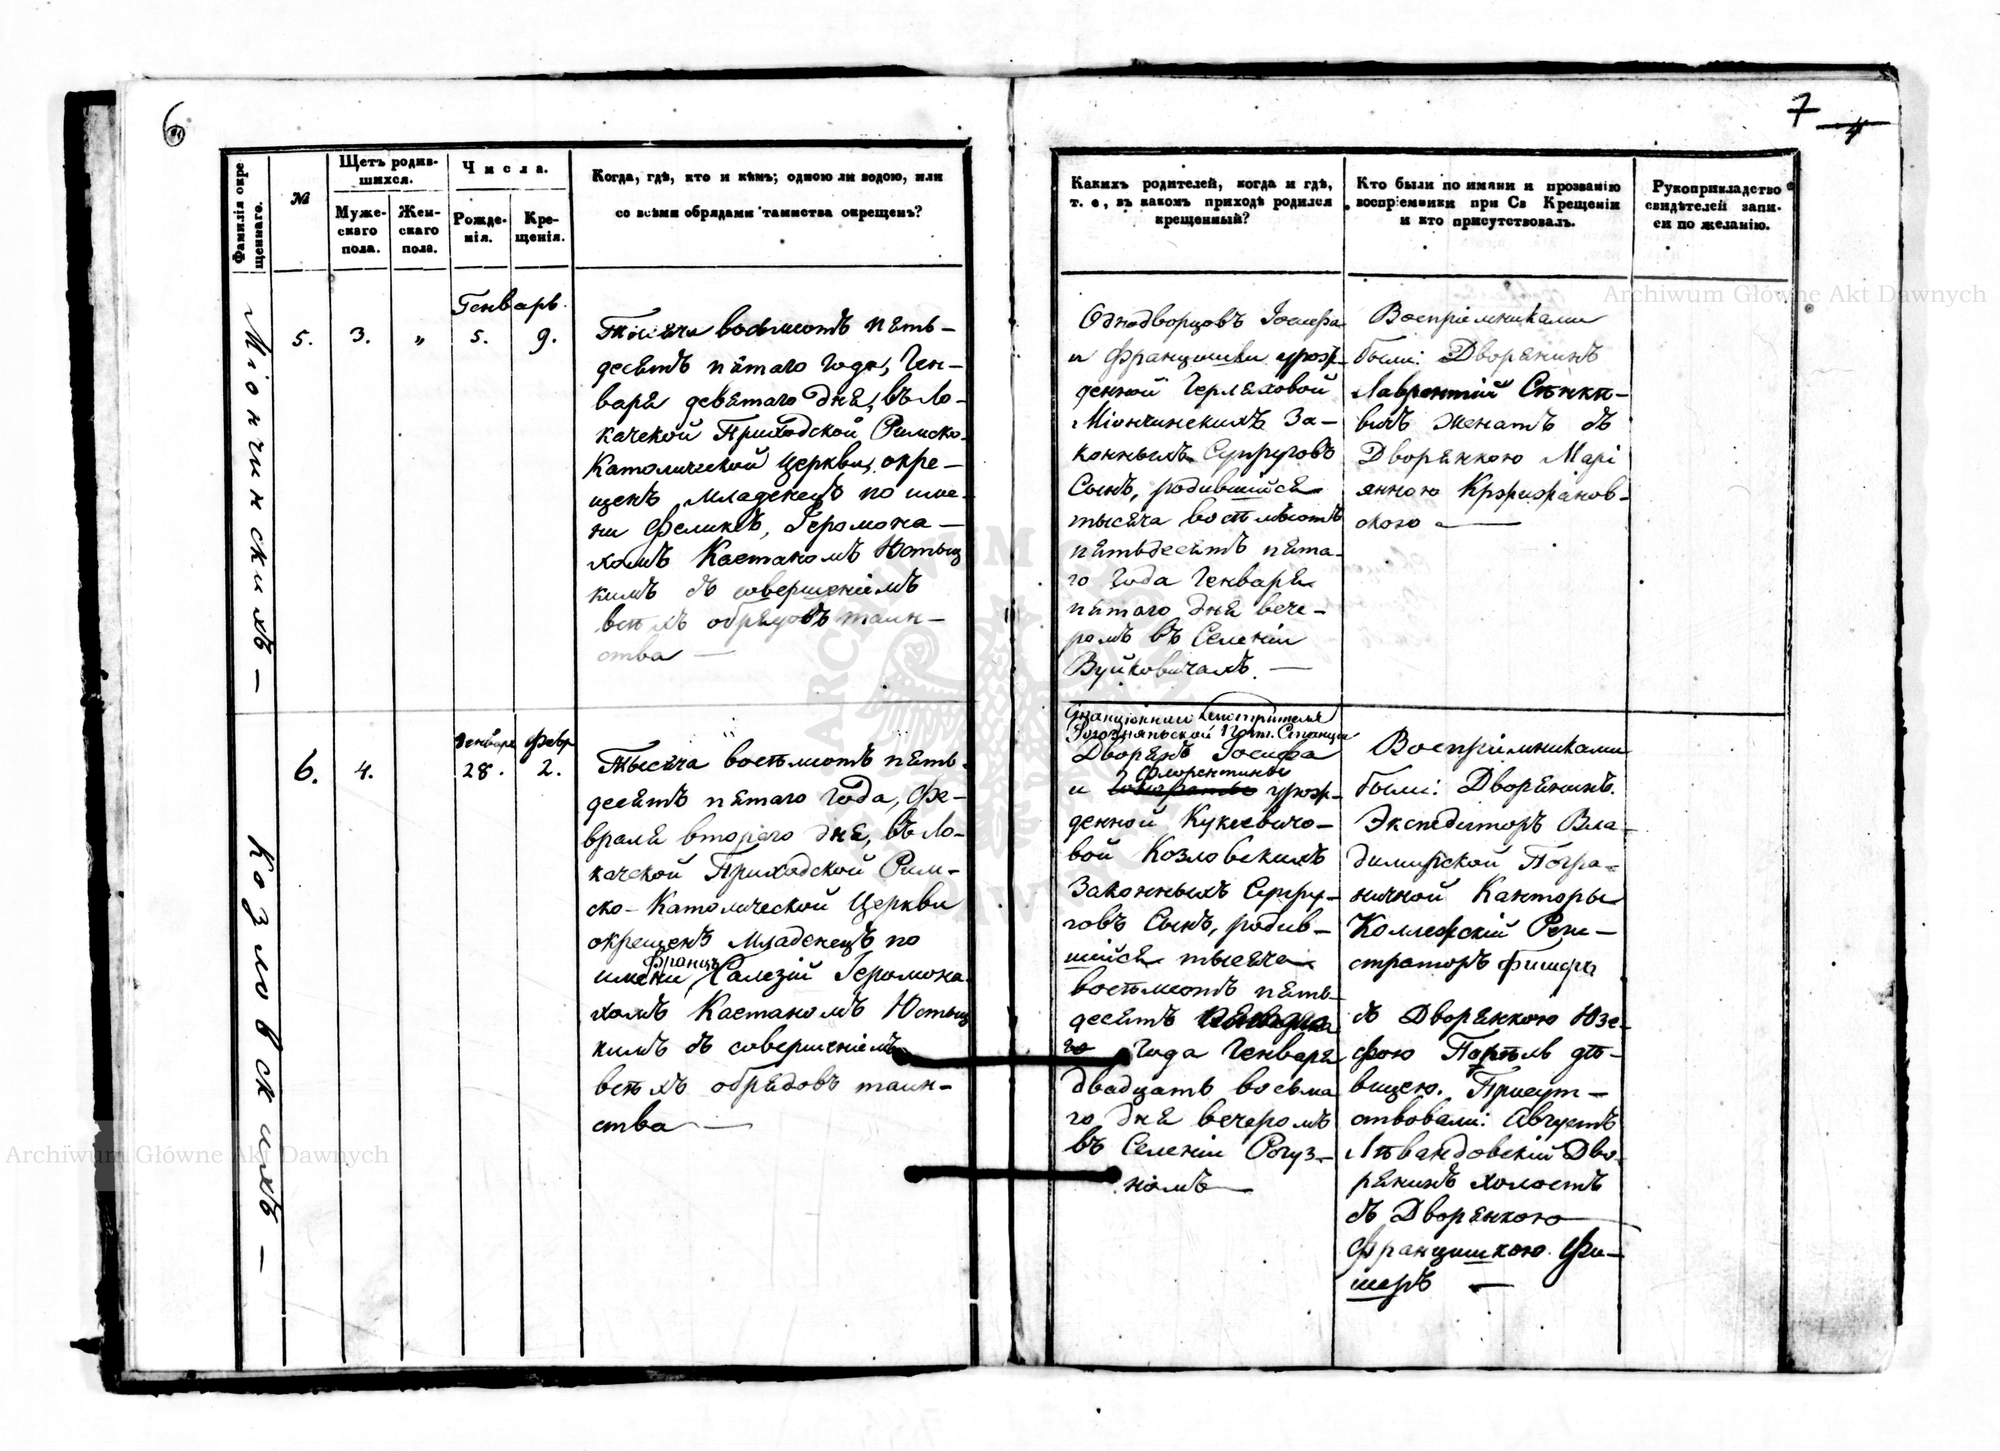 6
Фамилія окрещеннаго.
№
Щетъ родившихся.
Мужескаго пола.
Женскаго пола.
Числа.
Рожденія.
Крещенія.
Когда, гдѣ, кто и кѣмъ; одною ли водою, или
со всѣми обрядами таинства окрещенъ?
Міончинскихъ —
5.
3.
„
Генварь.
5.
9.
Тысяча восьмсотъ пять-
десятъ пятаго года, Ген-
варя девятаго дня, въ Ло-
качской Приходской Римско-
Католической Церкви, окре-
щенъ младенецъ по име-
ни Феликсъ, Іеромона-
хомъ Каетаномъ
кимъ съ совершеніемъ
всѣхъ обрядовъ таин-
ства —
Козловскихъ —
6.
4.
Генваря
28.
Февр
2.
Тысяча восѣмсотъ пять-
десятъ пятаго года, Фе-
враля втораго дня, въ Ло-
качской Приходской Рим-
ско-Католической Церкви
окрещенъ Младенецъ по
Францъ
имени Салезій Іеромона-
хомъ Каетаномъ
кимъ съ совершеніемъ
всѣхъ обрядовъ таин-
ства —
7
4
Какихъ родителей, когда и гдѣ,
т. е, въ какомъ приходѣ родился
крещенный?
Кто были по имяни и прозванію
воспріемники при Св Крещеніи
и кто присутствовалъ.
Рукоприкладство
свидѣтелей запи-
си по желанію.
Однодворцовъ Іосифа
и Францишки урож-
денной Герляховой
Міончинскихъ За-
конныхъ Супруговъ
Сынъ, родившійся
тысяча восѣмьсотъ
пятьдесятъ пята-
го Года Генваря
пятаго дня вече-
ромъ въ Селеніи
Вуйковичахъ. —
Воспріемниками
были: Дворянинъ
Лаврентій Сѣнке-
вичъ женатъ съ
Дворянкою Марі
янною Кржижанов-
скою —
Смотрителя
Почт. Станціи
Дворянъ Іосифа
Флорентины
и урож-
денной Кукевичо-
вой Козловскихъ
Законныхъ Супру-
говъ Сынъ, родив-
шійся тысяча
восѣмсотъ пять-
десятъ
го Года Генваря
двадцать восьма
го дня вечеромъ
въ Селеніи Рогуз-
номъ —
Воспріемниками
были: Дворянинъ.
Экспедиторъ Вла-
димирской Погра-
ничной Канторы
Коллежскій Реги-
страторъ Фишеръ
съ Дворянкою Юзе-
фою дѣ-
вицею. Присут-
ствовали: Августъ
Лѣвандовскій Дво-
рянинъ холостъ
съ Дворянкою
Францишкою Фи-
шеръ —
Archiwum Główne Akt Dawnych
Archiwum Główne Akt Dawnych